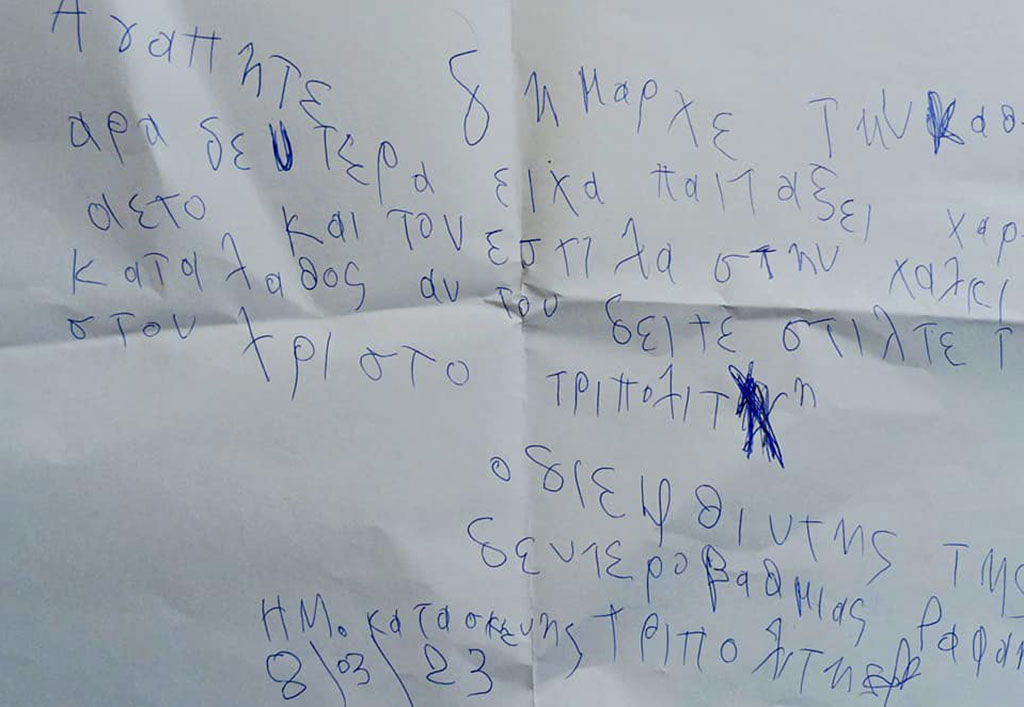 Αγαπητε δημαρχε την καθ
αρα δευτερα ειχα παιταξει χαρ
αετο και τον εστιλα στην χαλκι
καταλαθος αν τον δειτε στιλτε τ
στον χριστο τριπολιτη
ο διεφθιντης της
δευτεροβαθμιας ραφαη
ΗΜ. κατασκευης
8/03/23